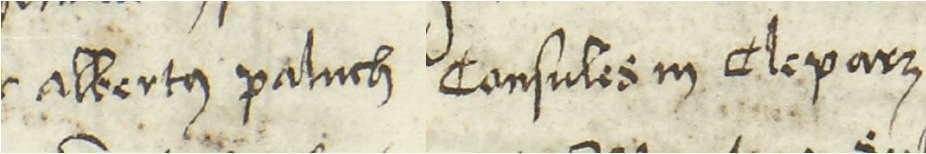 albertꝯ paluch
Consules in Cleparz